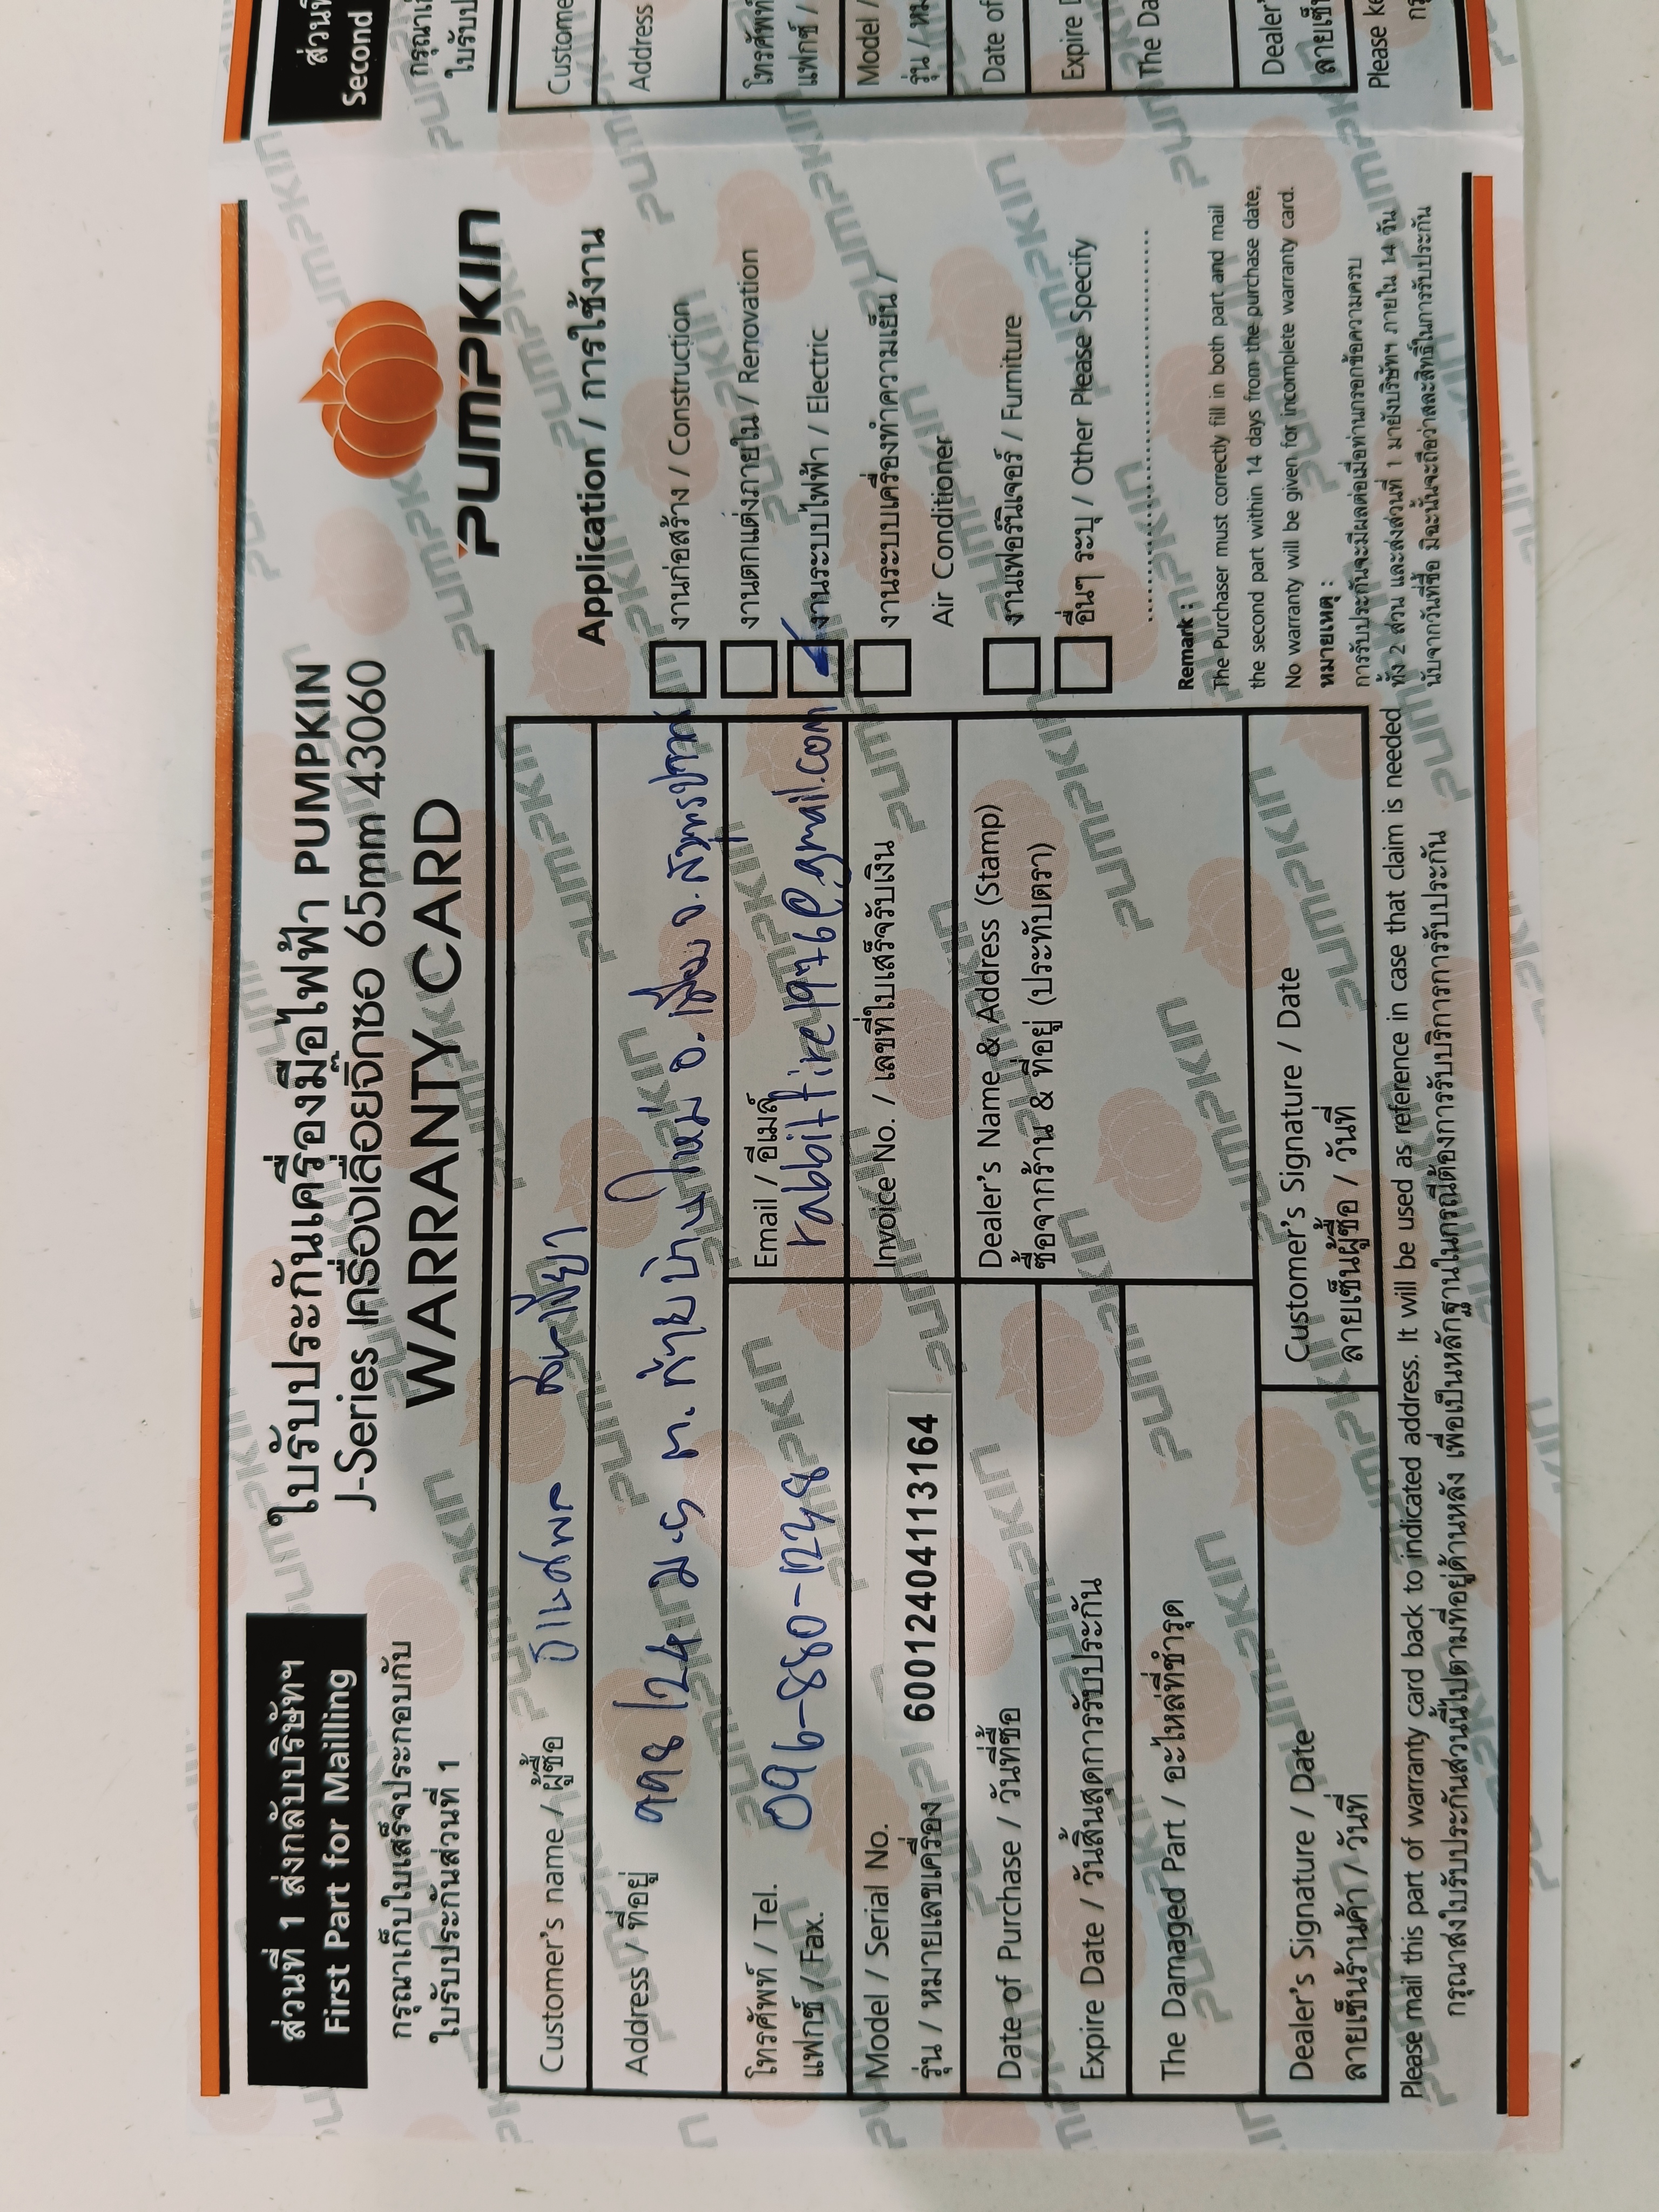 ส่วนที่ 1 ส่งกลับบริษัทฯ
First Part for Mailling
กรุณาเก็บใบเสร็จประกอบกับ
ใบรับประกันส่วนที่ 1
ใบรับประกันเครื่องมือไฟฟ้า PUMPKIN
J-Series เครื่องเลื่อยจิ๊กซอ 65mm 43060
WARRANTY CARD
PUMPKIN
Customer's name / ผู้ซื้อ
Address / ที่อยู่ 998/24 ม.5 ต.ท้ายบ้านใหม่ อ.เมือง จ.สมุทรปราการ
โทรศัพท์ / Tel. 096-880-1248
แฟกซ์ / Fax.
Email / อีเมล์
rabbitfire1976@gmail.com
Model / Serial No.
รุ่น / หมายเลขเครื่อง 60012404113164
Invoice No. / เลขที่ใบเสร็จรับเงิน
Date of Purchase / วันที่ซื้อ
Expire Date / วันสิ้นสุดการรับประกัน
The Damaged Part / อะไหล่ที่ชำรุด
Dealer's Name & Address (Stamp)
ซื้อจากร้าน & ที่อยู่ (ประทับตรา)
Dealer's Signature / Date
ลายเซ็นร้านค้า / วันที่
Customer's Signature / Date
ลายเซ็นผู้ซื้อ / วันที่
Application / การใช้งาน
งานก่อสร้าง / Construction
งานตกแต่งภายใน / Renovation
งานระบบไฟฟ้า / Electric
งานระบบเครื่องทำความเย็น /
Air Conditioner
งานเฟอร์นิเจอร์ / Furniture
อื่นๆ ระบุ / Other Please Specify
Remark :
The Purchaser must correctly fill in both part and mail
the second part within 14 days from the purchase date,
No warranty will be given for incomplete warranty card.
หมายเหตุ :
การรับประกันจะมีผลต่อเมื่อท่านกรอกข้อความครบ
ทั้ง 2 ส่วน และส่งส่วนที่ 1 มายังบริษัทฯ ภายใน 14 วัน
นับจากวันที่ซื้อ มิฉะนั้นจะถือว่าสละสิทธิ์ในการรับประกัน
Please mail this part of warranty card back to indicated address. It will be used as reference in case that claim is needed
กรุณาส่งใบรับประกันส่วนนี้ไปตามที่อยู่ด้านหลัง เพื่อเป็นหลักฐานในกรณีต้องการรับบริการการรับประกัน
Second
Address
โทรศัพท์
แฟกซ์ /
Model /
Date of
The Da